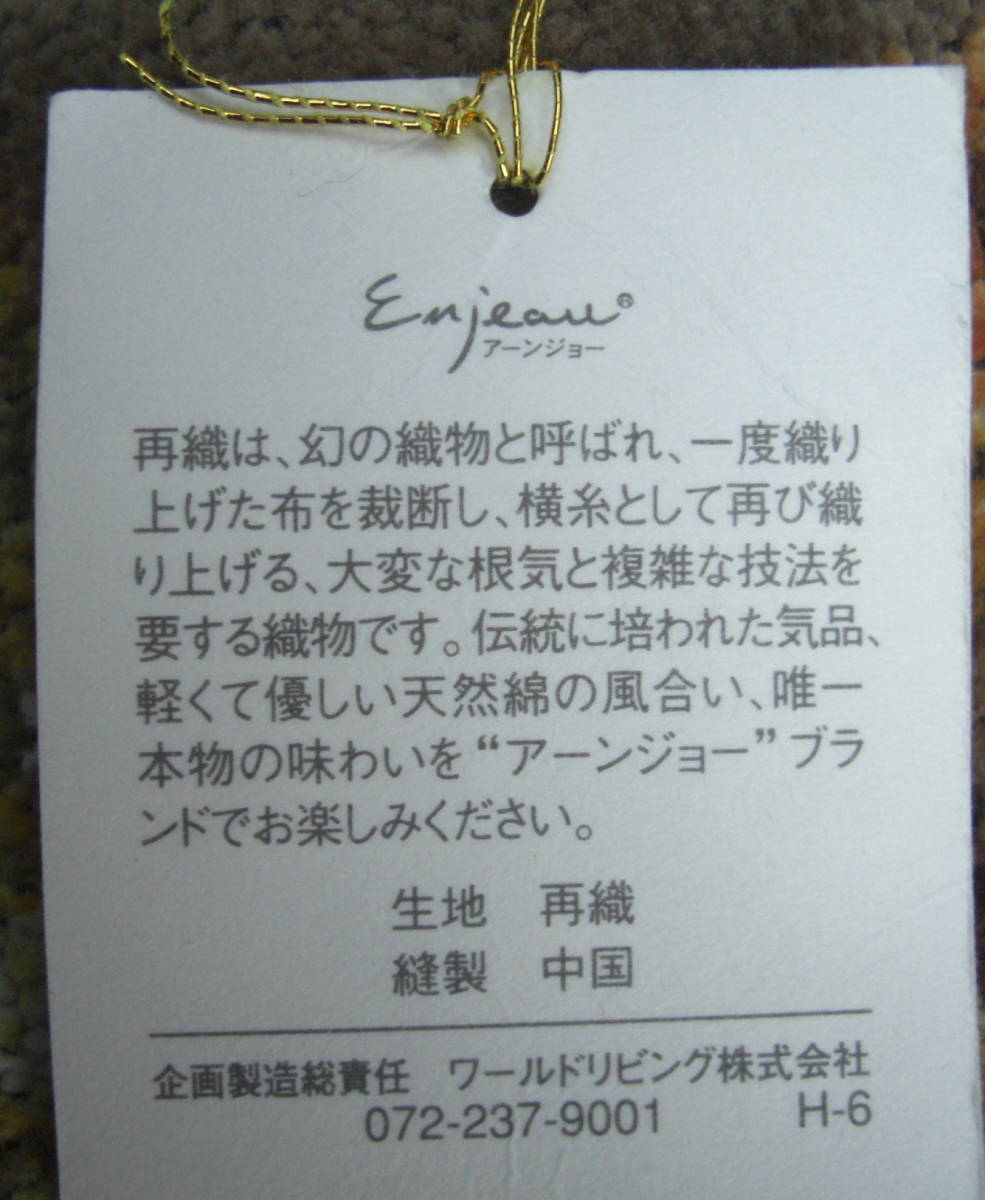 Enjeau®
アーンジョー
再織は、幻の織物と呼ばれ、一度織り
上げた布を裁断し、横糸として再び織
り上げる、大変な根気と複雑な技法を
要する織物です。伝統に培われた気品、
軽くて優しい天然綿の風合い、唯一
本物の味わいを“アーンジョー”ブラ
ンドでお楽しみください。
生地 再織
縫製 中国
企画製造総責任 ワールドリビング株式会社
072-237-9001 H-6